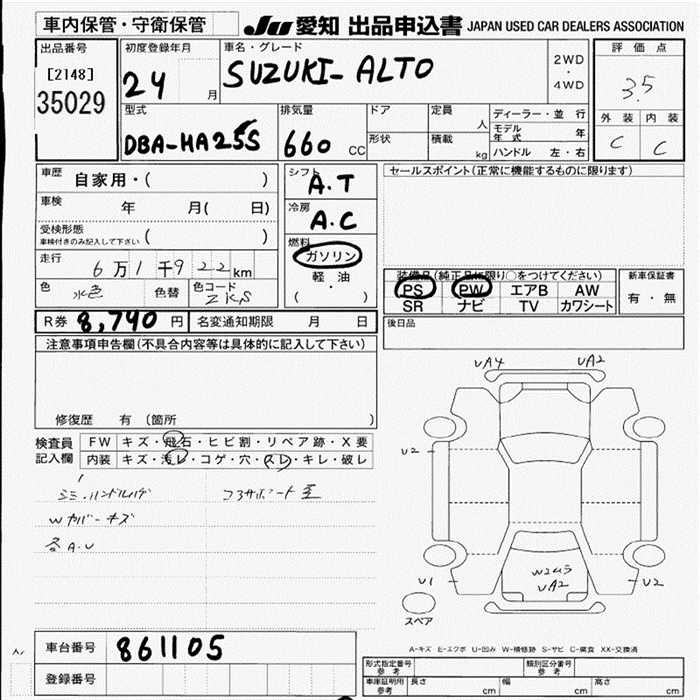 車内保管・守衛保管
JU 愛知 出品申込書 JAPAN USED CAR DEALERS ASSOCIATION
出品番号
[2148]
35029
初度登録年月
24 月
車名・グレード
SUZUKI- ALTO
2WD
・
4WD
評価点
3.5
外装 内装
C C
型式
DBA-HA25S
排気量
660 CC
ドア
形状
定員
人
積載
kg
ディーラー・並行
モデル年式 年
ハンドル 左・右
車歴 自家用・( )
車検 年 月( 日)
受検形態
車検付きのみ記入して下さい ( )
走行 6万1千922km
色 水色 色替 色コード
シフト A.T
冷房 A.C
燃料 ガソリン
軽・油
( ・ )
セールスポイント(正常に機能するものに限ります)
装備品(純正品に限り○をつけてください)
PS PW エアB AW
SR ナビ TV カワシート
新車保証書
有・無
後日品
R券 8,740円 名変通知期限 月 日
注意事項申告欄(不具合内容等は具体的に記入して下さい)
修復歴 有 (箇所 )
検査員記入欄
FW キズ・飛石・ヒビ割・リペア跡・X要
内装 キズ・汚レ・コゲ・穴・スレ・キレ・破レ
シミ・ハンドルハゲ
Wカバーキズ
各A.U
UA4 UA2
U2
U1
U2
W2ムラ
UA2
スペア
A-キズ E-エクボ U-凹み W-補修跡 S-サビ C-腐食 XX-交換済
車台番号 861105
登録番号
型式指定番号 参考
類別区分番号 参考
車庫証明用 参考 長さ cm 幅 cm 高さ cm